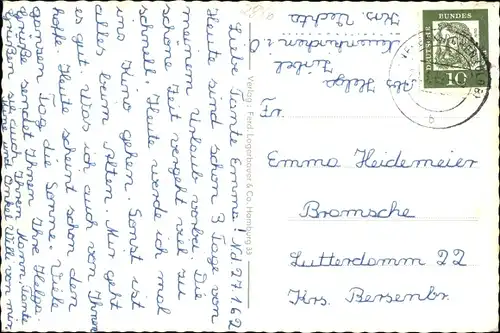 Nd 27.1.62
Liebe Tante Emma!
Heute sind schon 3 Tage von
meinem Urlaub vorbei. Die
schöne Zeit vergeht viel zu
schnell. Heute werde ich mal
ins Kino gehen. Sonst ist
alles beim Alten. Mir geht
es gut. Was ich auch von Ihnen
hoffe. Heute scheint schon den
ganzen Tag die Sonne. Viele
Grüße sendet Ihnen Ihre Helga.
Grüßen Sie auch Ihren Mann. Tante
und Onkel Viele von mir
Verlag: Ferd. Lagerbauer & Co., Hamburg 33
Abs Helga
Neuenkirchen i. O.
Krs Vechta
DEUTSCHE
BUNDES
10
b
Fr.
Emma Heidemeier
Bramsche
Lutterdamm 22
Krs. Bersenbr.